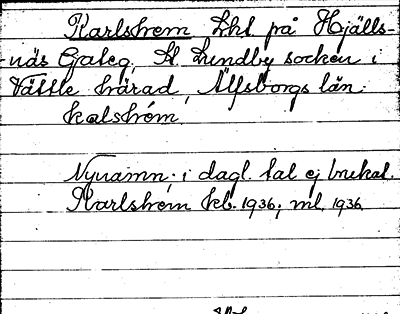 Karlshem Lht på Hjälls-
näs Gateg. St. Lundby socken i
Vättle härad, Älfsborgs län.
kalshém
Nynamn i dagl. tal ej brukat.
Karlshem kb. 1936; ml. 1936